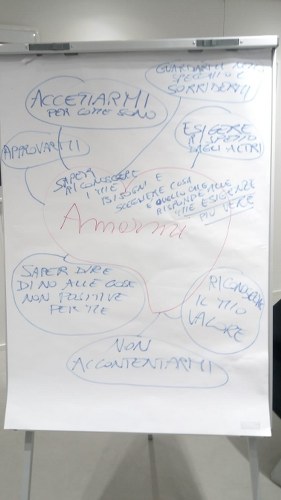 GUARDARMI NELLO
SPECCHIO E
SORRIDERMI
ACCETTARMI
PER COME SONO
ESIGERE
IL RISPETTO
DAGLI ALTRI
APPROVARMI
SAPER
RICONOSCERE
I MIEI
BISOGNI E
SCEGLIERE COSA
E QUELLO CHE ALLE
MIE ESIGENZE
PIÙ VERE
Amarmi
SAPER DIRE
DI NO ALLE COSE
NON POSITIVE
PER ME
RICONOSCERE
IL MIO
VALORE
NON
ACCONTENTARMI